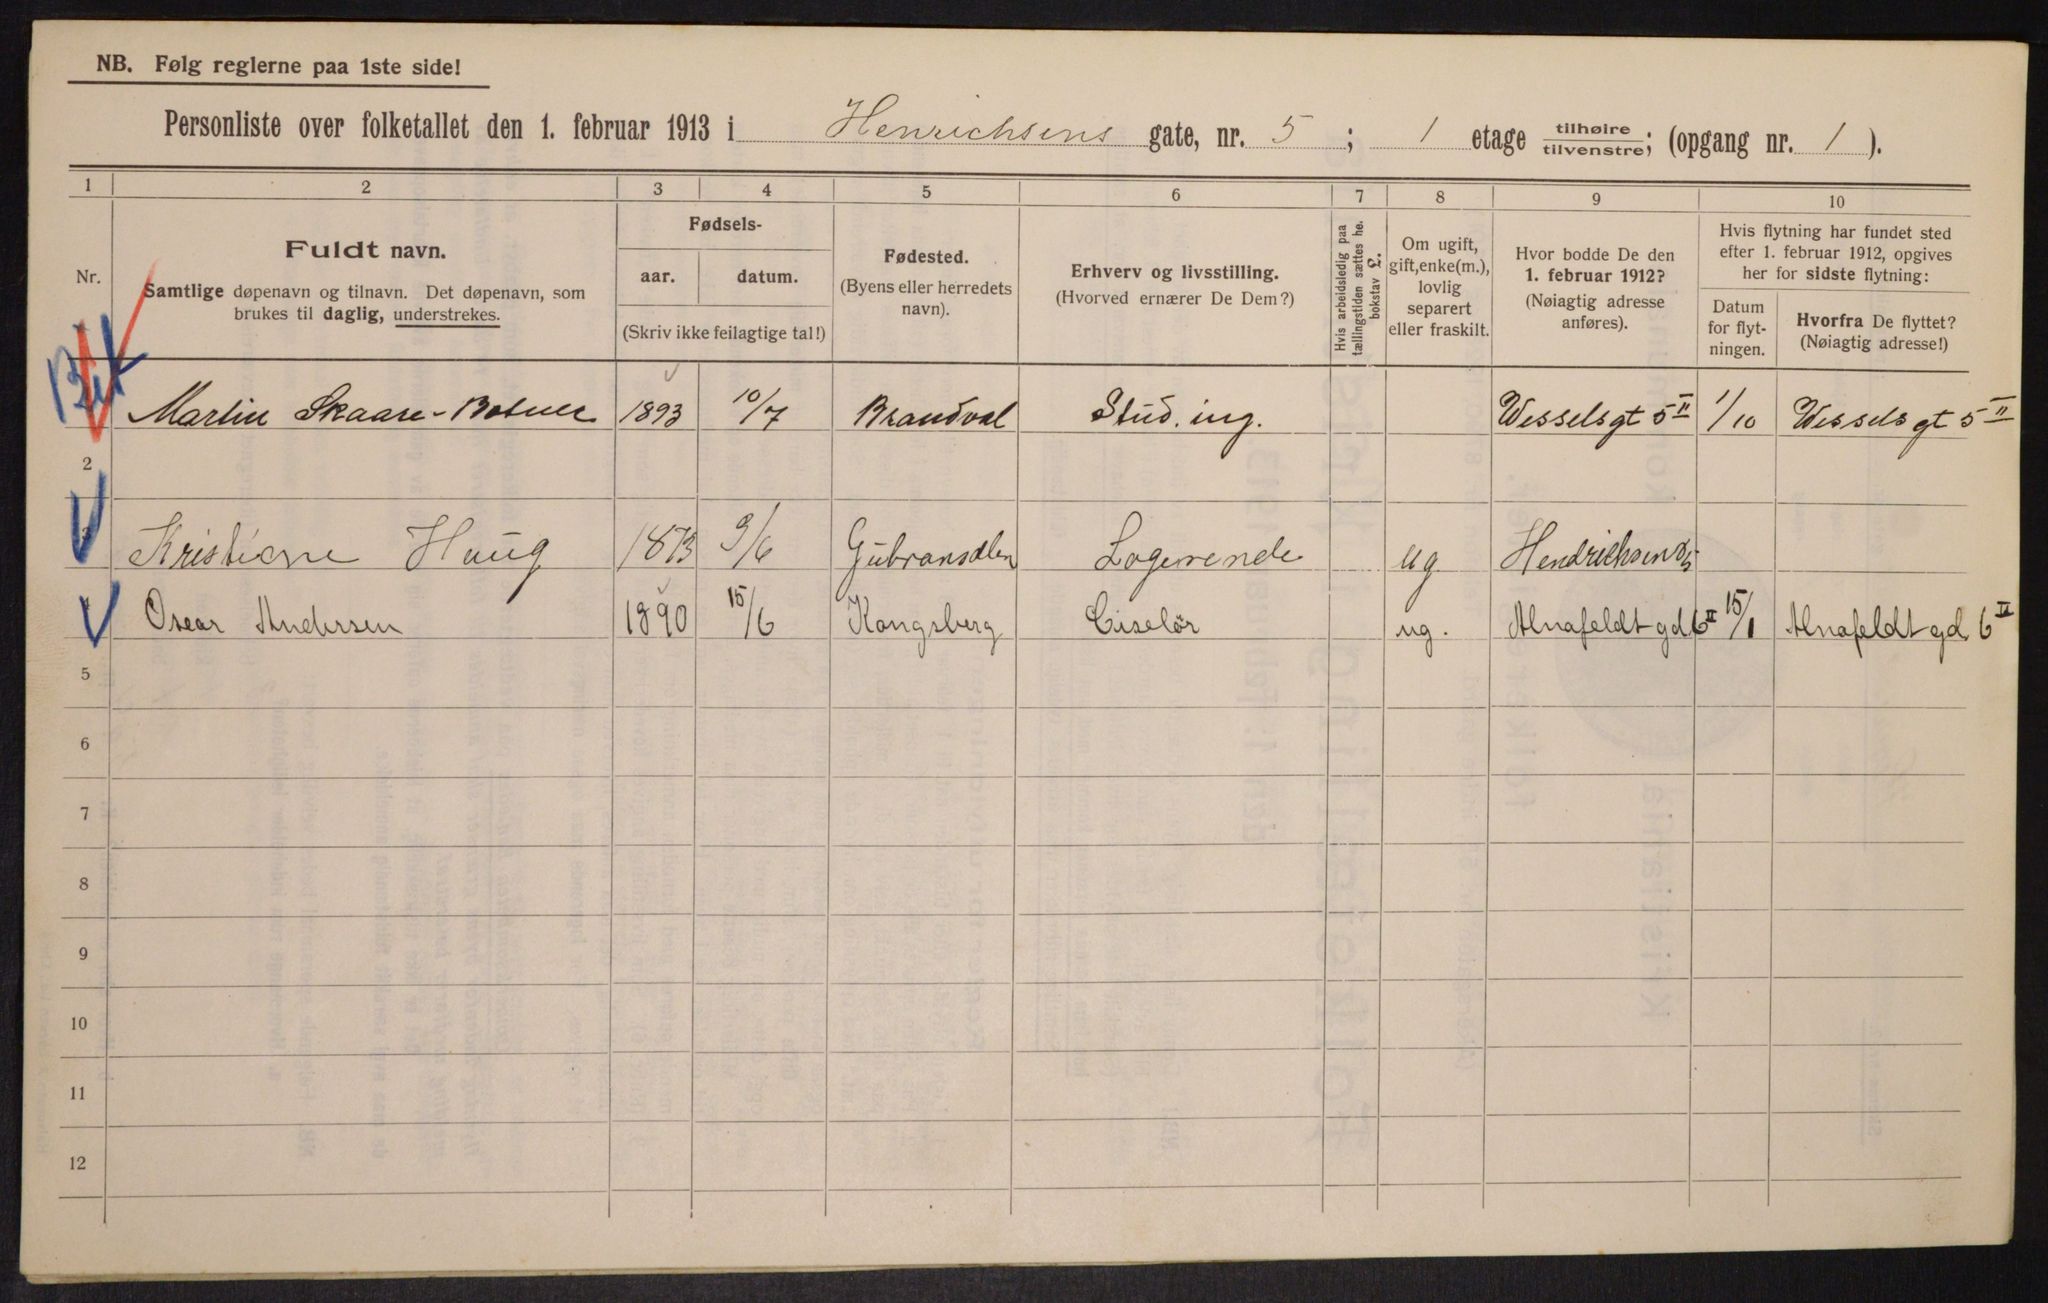 NB. Følg reglerne paa 1ste side!
Personliste over folketallet den 1. februar 1913 i Henrichsens gate, nr. 5 ; 1 etage tilhøire tilvenstre; (opgang nr. 1 ).
1 2 3 4 5 6 7 8 9 10
Nr.
Fuldt navn.
Samtlige døpenavn og tilnavn. Det døpenavn, som
brukes til daglig, understrekes.
Fødsels-
aar. datum.
(Skriv ikke feilagtige tal!)
Fødested.
(Byens eller herredets
navn).
Erhverv og livsstilling.
(Hvorved ernærer De Dem?)
Hvis arbeidsledig paa
tællingstiden sættes he.
bokstav L.
Om ugift,
gift, enke(m.),
lovlig
separert
eller fraskilt.
Hvor bodde De den
1. februar 1912?
(Nøiagtig adresse
anføres).
Hvis flytning har fundet sted
efter 1. februar 1912, opgives
her for sidste flytning:
Datum
for flyt-
ningen.
Hvorfra De flyttet?
(Nøiagtig adresse!)
Martin Skaare-Botner 1893 10/7 Brandval Stud. ing. Wesselsgt 5 II 1/10 Wesselsgt 5 II
2
3 Kristiane Haug 1873 9/6 Gubransdlen Logerende ug
4 Oscar Andersen 1890 15/6 Kongsberg Ciselör ug. 6 II 15/1 6 II
5
6
7
8
9
10
11
12